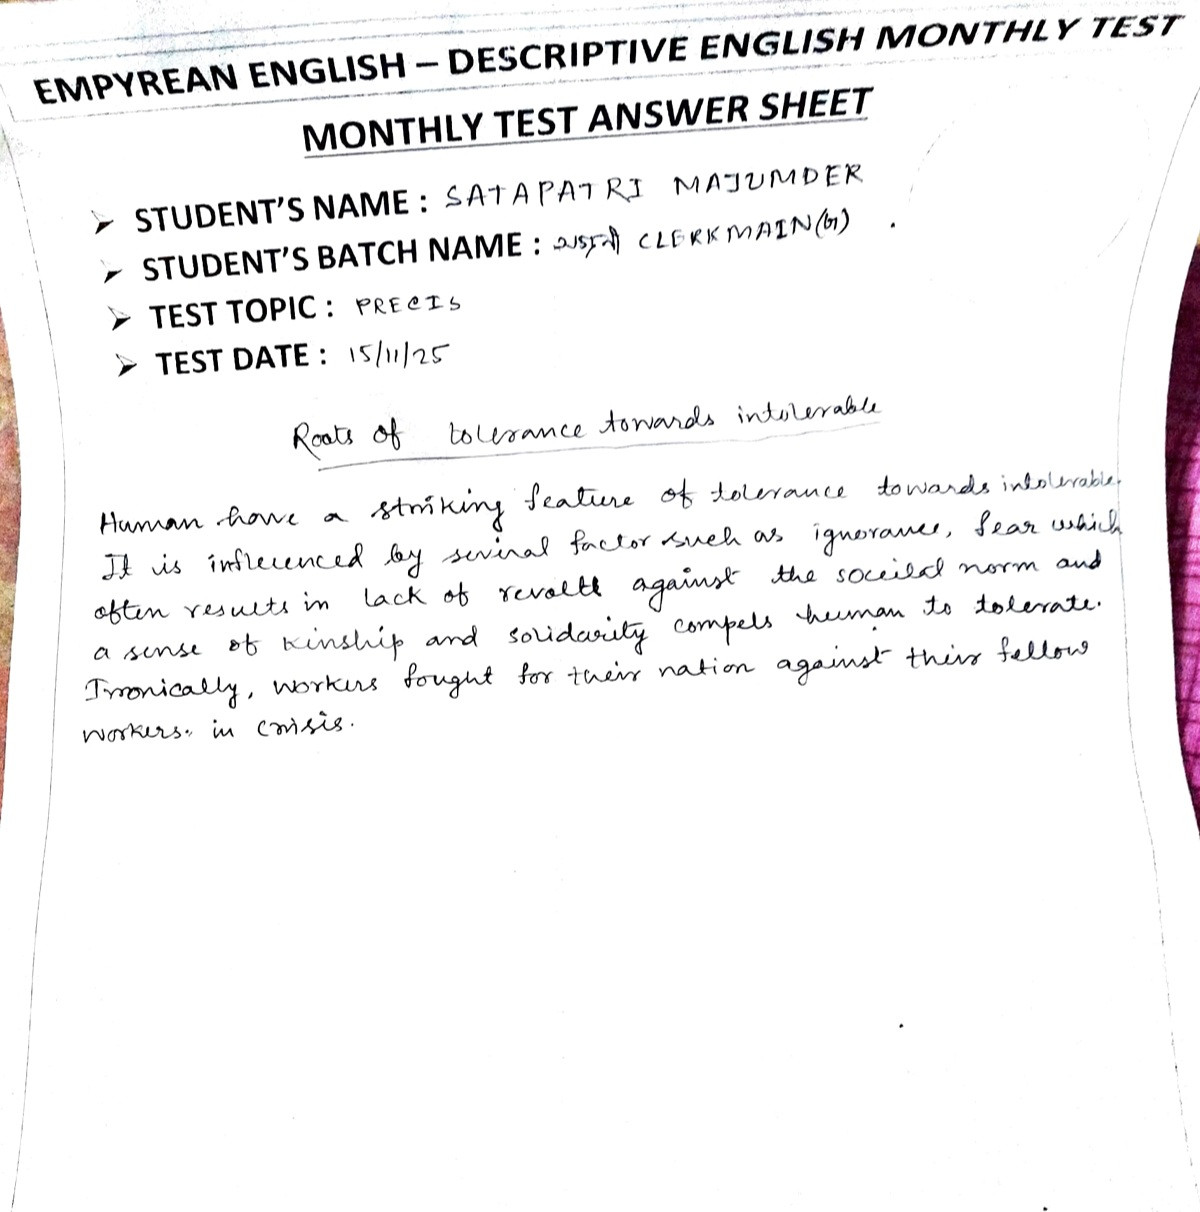 EMPYREAN ENGLISH – DESCRIPTIVE ENGLISH MONTHLY TEST
MONTHLY TEST ANSWER SHEET
➢ STUDENT'S NAME : SATAPATRI MAJUMDER
➢ STUDENT'S BATCH NAME : CLERKMAIN
➢ TEST TOPIC : PRECIS
➢ TEST DATE : 15/11/25
Roots of tolerance towards intolerable
Human have a striking feature of tolerance towards intolerable.
It is influenced by several factor such as ignorance, fear which
often results in lack of revolt against the norm and
a sense of kinship and solidarity compels human to tolerate.
Ironically, workers fought for their nation against their fellow
workers. in crisis.